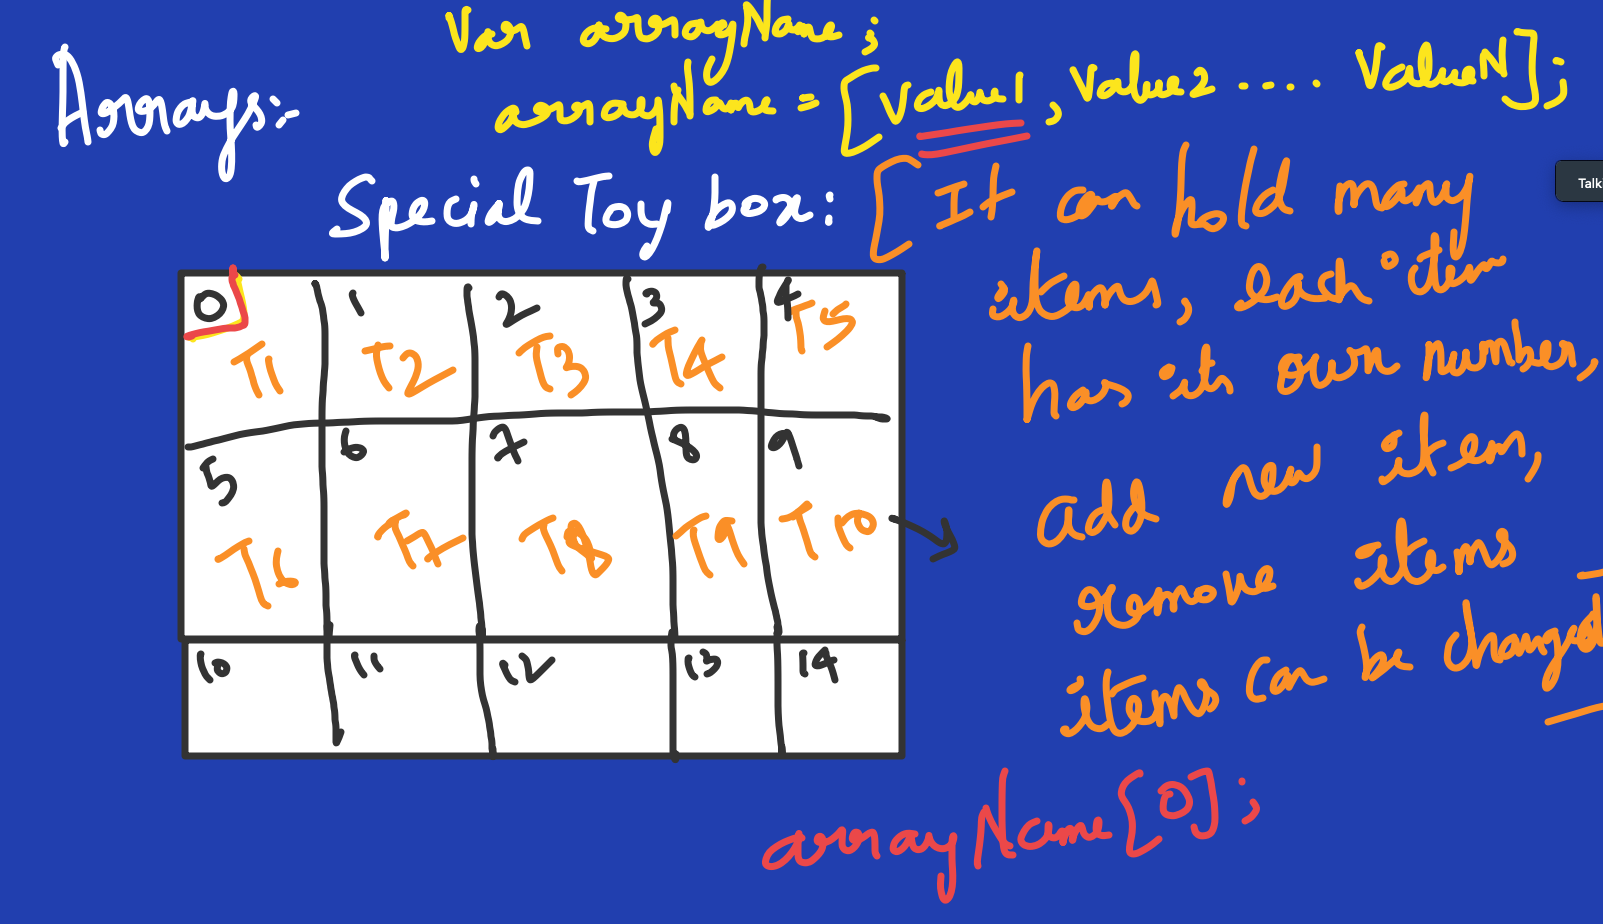 Var arrayName;
Arrays:-
arrayName = [Value1, Value2 .... ValueN];
Talk
Special Toy box: [It can hold many
items, each item
has its own number,
add new item,
remove items
items can be changed
0 1 2 3 4
T1 T2 T3 T4 T5
5 6 7 8 9
T6 T7 T8 T9 T10
10 11 12 13 14
arrayName[0];